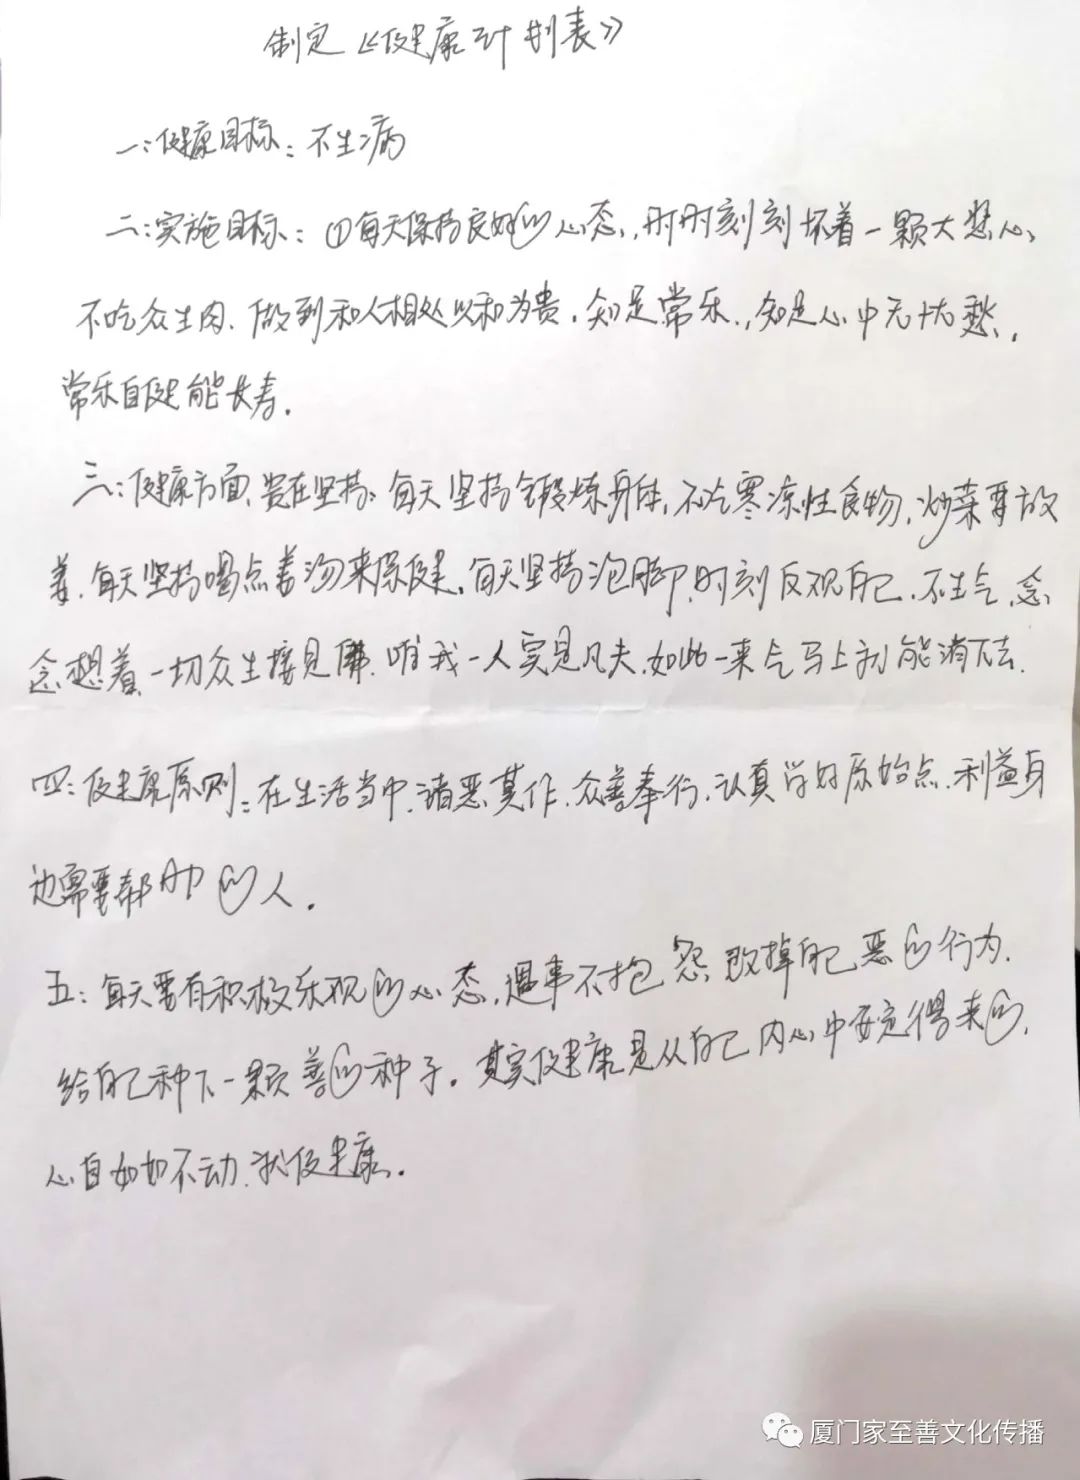 制定《健康计划表》
一:健康目标:不生病
二:实施目标:①每天保持良好的心态,时时刻刻怀着一颗大悲心,
不吃众生肉、做到和人相处以和为贵.知足常乐.,知足心中无忧愁.
常乐自健能长寿.
三:健康方面、贵在坚持:每天坚持锻炼身体,不吃寒凉性食物,炒菜要放
姜.每天坚持喝点姜汤来保健.每天坚持泡脚,时刻反观自己.不生气.念
念想着一切众生接是佛.唯我一人实是凡夫.如此一来气马上就能消下去.
四:健康原则:在生活当中,诸恶莫作.众善奉行.认真学好原始点.利益身
边需要帮助的人.
五:每天要有积极乐观的心态.遇事不抱怨.改掉自己恶的行为.
给自己种下一颗善的种子.其实健康是从自己内心中安定得来的.
心自如如不动.就健康.
厦门家至善文化传播